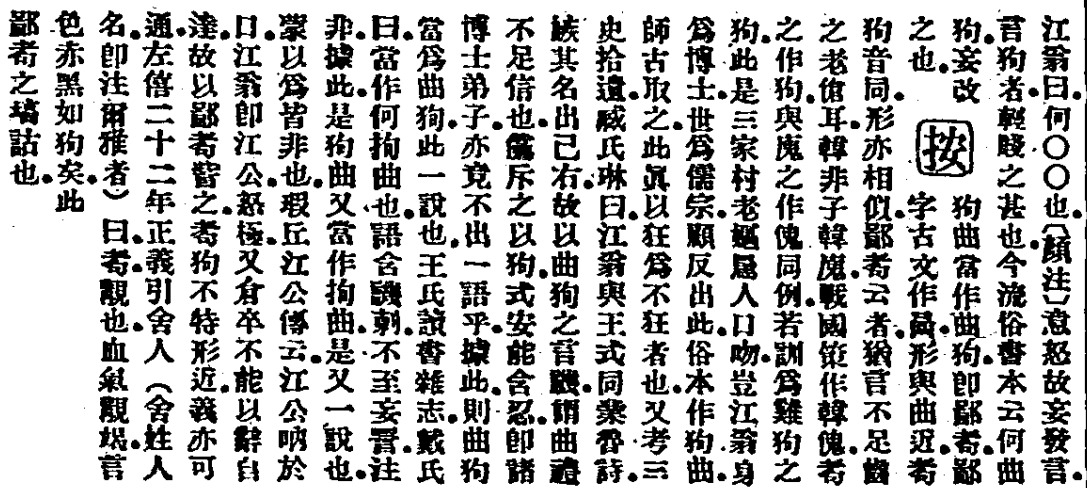 江翁曰。何〇〇也。（顏注）意怒故妄發言。
言狗者。輕賤之甚也。今流俗書本云何曲
狗。妄改
之也。
按
狗曲當作曲狗。卽鄙耇。鄙
字古文作啚。形與曲近。耇
狗音同。形亦相似。鄙耇云者。猶言不足齒
之老傖耳。韓非子韓魔。戰國策作韓傀。耇
之作狗。與魔之作傀同例。若訓爲雞狗之
狗。此是三家村老嫗人口吻。豈江翁身
爲博士。世爲儒宗。顧反出此。俗本作狗曲。
師古取之。此眞以狂爲不狂者也。又考三
史拾遺。臧氏琳曰。江翁與王式同業魯詩。
嫉其名出己右。故以曲狗之言譏謂曲禮
不足信也。儻斥之以狗。式安能含忍。卽諸
博士弟子。亦竟不出一語乎。據此。則曲狗
當爲曲狗。此一說也。王氏讀書雜志。戴氏
曰。當作何拘曲也。語含譏刺。不至妄詈。注
非。據此。是狗曲又當作拘曲。是又一說也。
蒙以爲皆非也。瑕丘江公傳云。江公吶於
口。江翁卽江公。怒極。又倉卒不能以辭自
達。故以鄙耇詈之。耇狗不特形近。義亦可
通。左僖二十二年正義引舍人（舍姓人
名卽注爾雅者）曰。耇。覯也。血氣覯竭。言
色赤黑如狗矣。此
鄙耇之塙詁也。